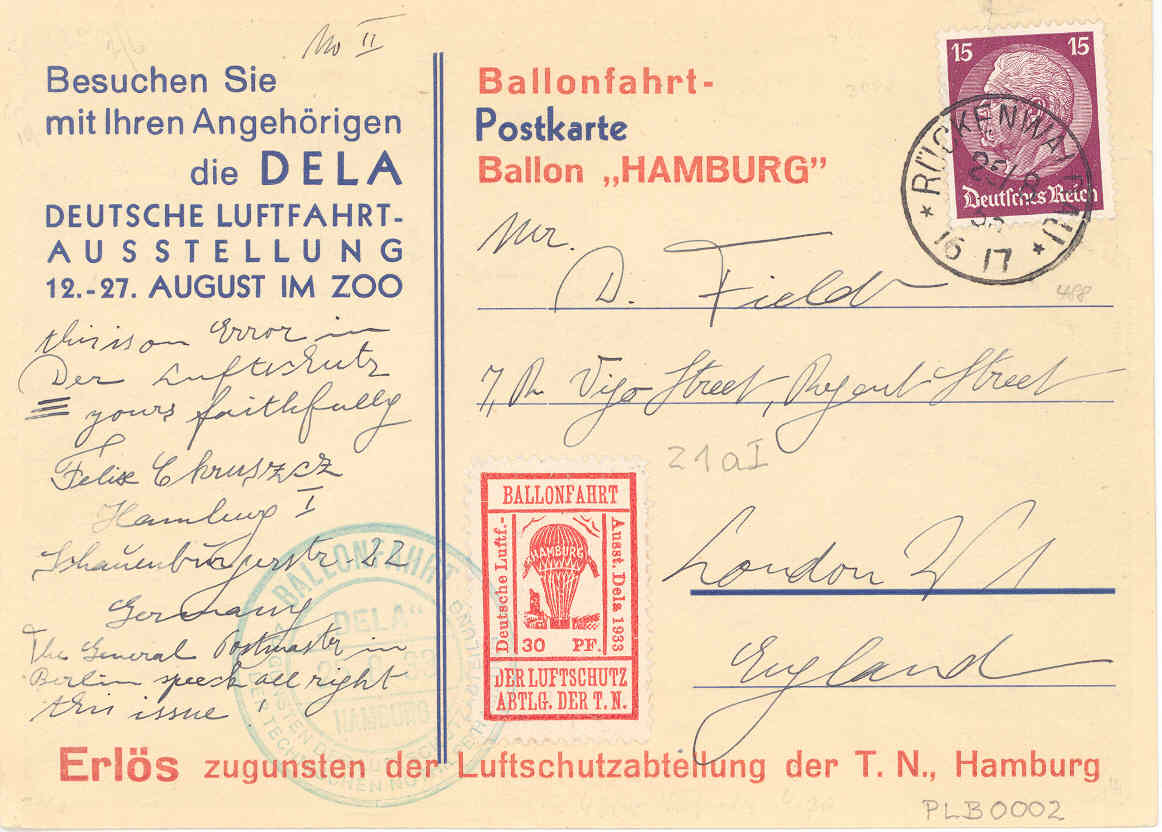 No II
Besuchen Sie
mit Ihren Angehörigen
die DELA
DEUTSCHE LUFTFAHRT-
AUSSTELLUNG
12.-27. AUGUST IM ZOO
this is on Error in
Der Luftschutz
yours faithfully
Felix Chruszcz
Hamburg I
Schauenburgerstr 22
Germany
The General Postmaster in
Berlin speech all right
this issue!
Ballonfahrt-
Postkarte
Ballon „HAMBURG"
15 15
Deutsches Reich
16 17
Mr.
D. Field
488
7, Vigo Street, Regent Street
21aI
London W1
England
BALLONFAHRT
Deutsche Luftf.-
HAMBURG
Ausst. Dela 1933
30 PF.
DER LUFTSCHUTZ
ABTLG. DER T. N.
BALLONFAHRT
„DELA"
HAMBURG
Erlös zugunsten der Luftschutzabteilung der T. N., Hamburg
PLB0002